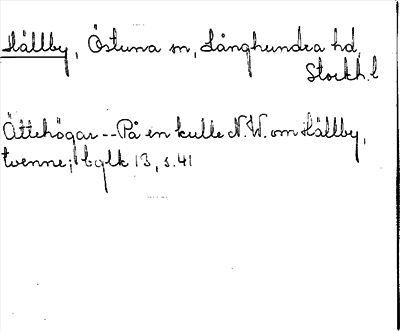 Hällby, Östuna sn, Långhundra hd,
Stockh. l
Ättehögar -- På en kulle N.W. om Hällby,
tvenne; bglk 13, s. 41